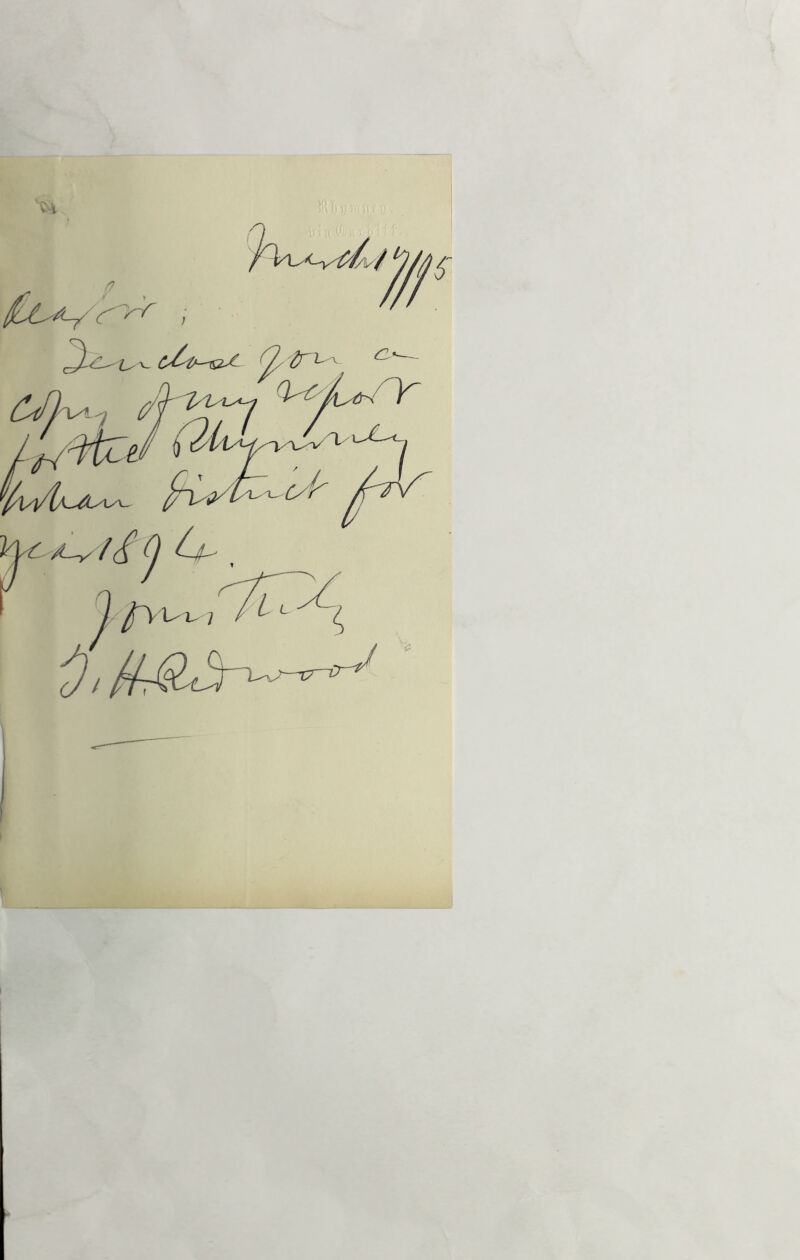 Rhymney,
via Cardiff.
March 17/95
Dear Sir,
I enclose you a
Copy of my report
for the Rhymney
Urban District for
year 1894.
Yours truly
T. H. Redwood